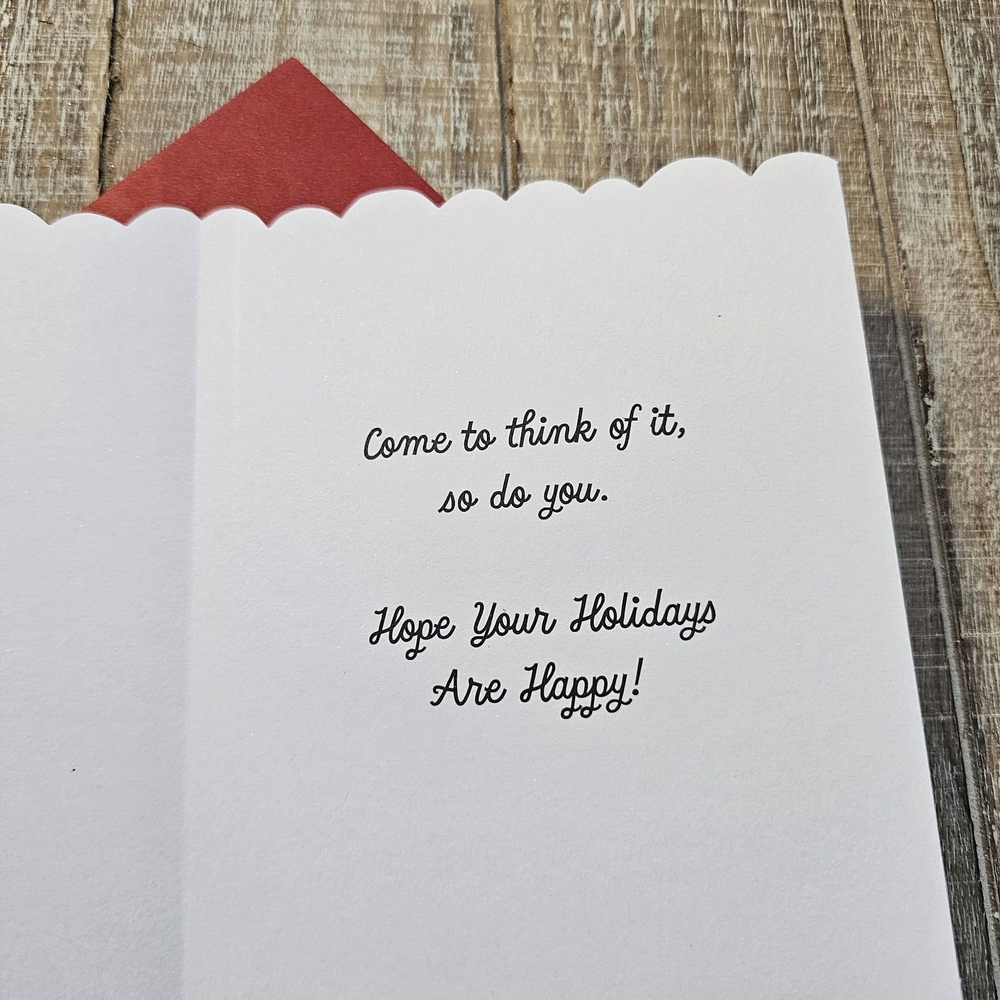 Come to think of it,
so do you.
Hope Your Holidays
Are Happy!